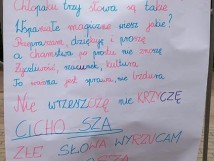 Chłopaku trzy słowa są takie
Wspaniałe magiczne wiesz jakie?
Przepraszam, dziękuję i proszę
a chamstwa po prostu nie znoszę
Życzliwość, szacunek, kultura
To ważna jest sprawa, nie bzdura
Nie WRZESZCZĘ nie KRZYCZĘ
CICHO SZA
ZŁE SŁOWA WYRZUCAM